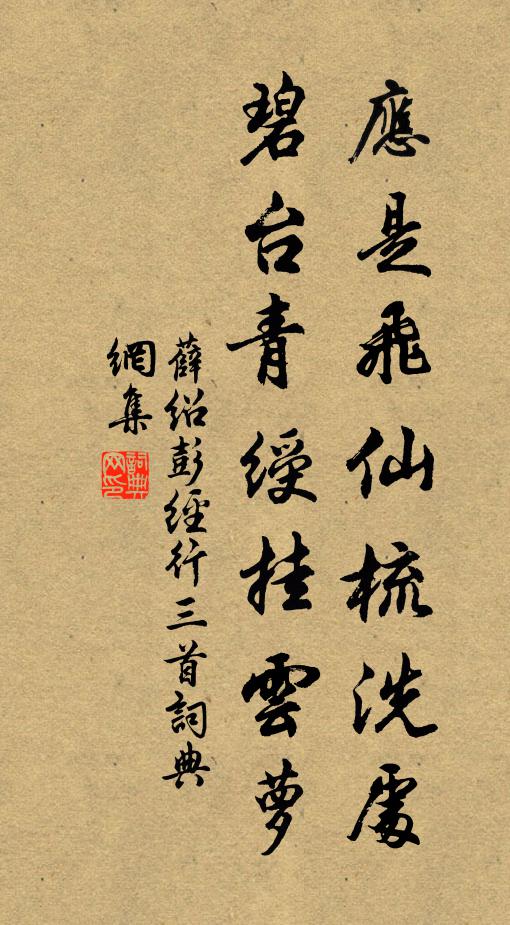 應是飛仙梳洗處
碧台青綬挂雲萝
薛紹彭經行三首詞典
網集
詞典
网印